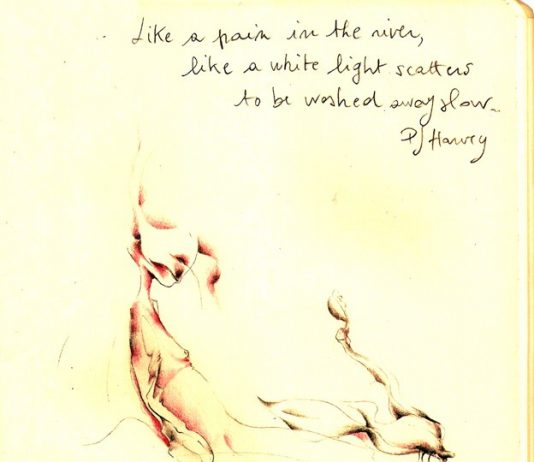 Like a pain in the river,
like a white light scatters
to be washed away slow..
PJ Harvey